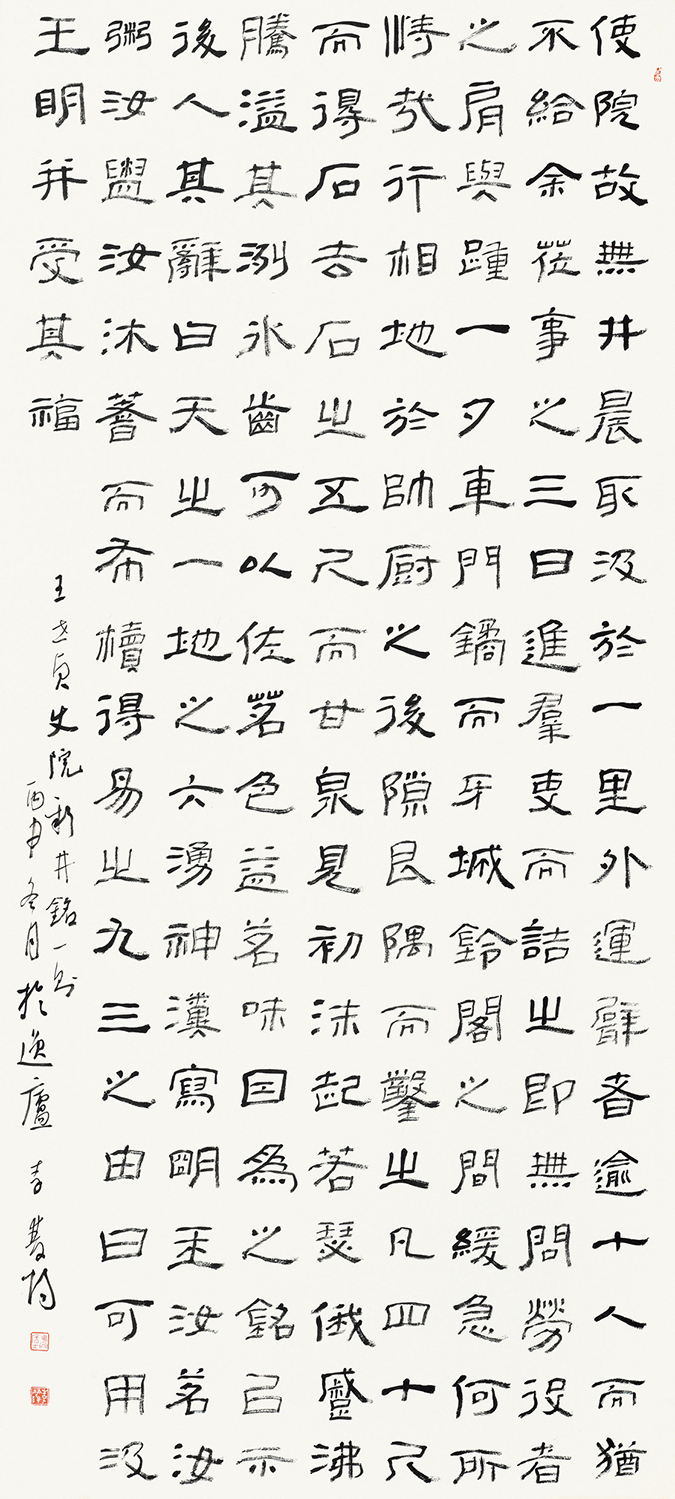 使院故無井晨取汲於一里外運者逾十人而猶
不給余莅事之三日進羣吏而詰之即無問勞役者
之肩與踵一夕車門鐍而牙城鈴閣之間緩急何所
恃哉行相地於帥廚之後隙艮隅而鑿之凡四十尺
而得石去石之五尺而甘泉見初沫起若瑟俄觱沸
騰溢其洌氷齒可以佐茗色益茗味因為之銘以示
後人其辭曰天之一地之六湧神瀵寫明玉汝茗汝
粥汝盥汝沐而希櫝得易之九三之由曰可用汲
王明并受其福
王世貞史院新井銘一則
丙申冬月於逸廬 李雙陽